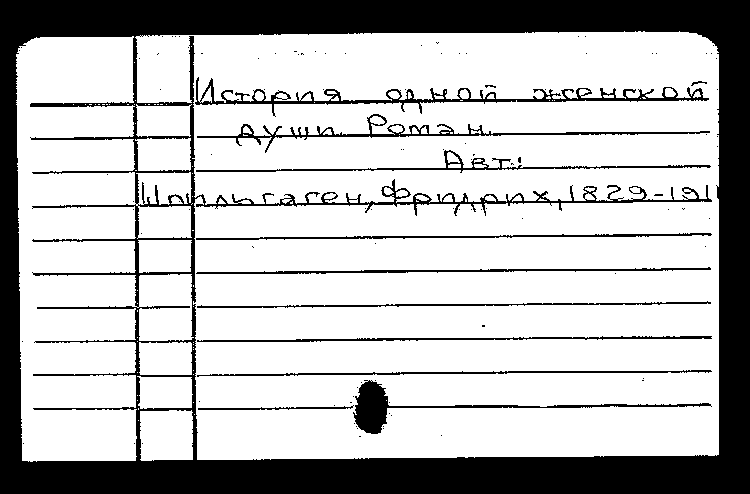 История одной женской
души. Роман.
Авт.:
Шпильгаген, Фридрих, 1829-1911